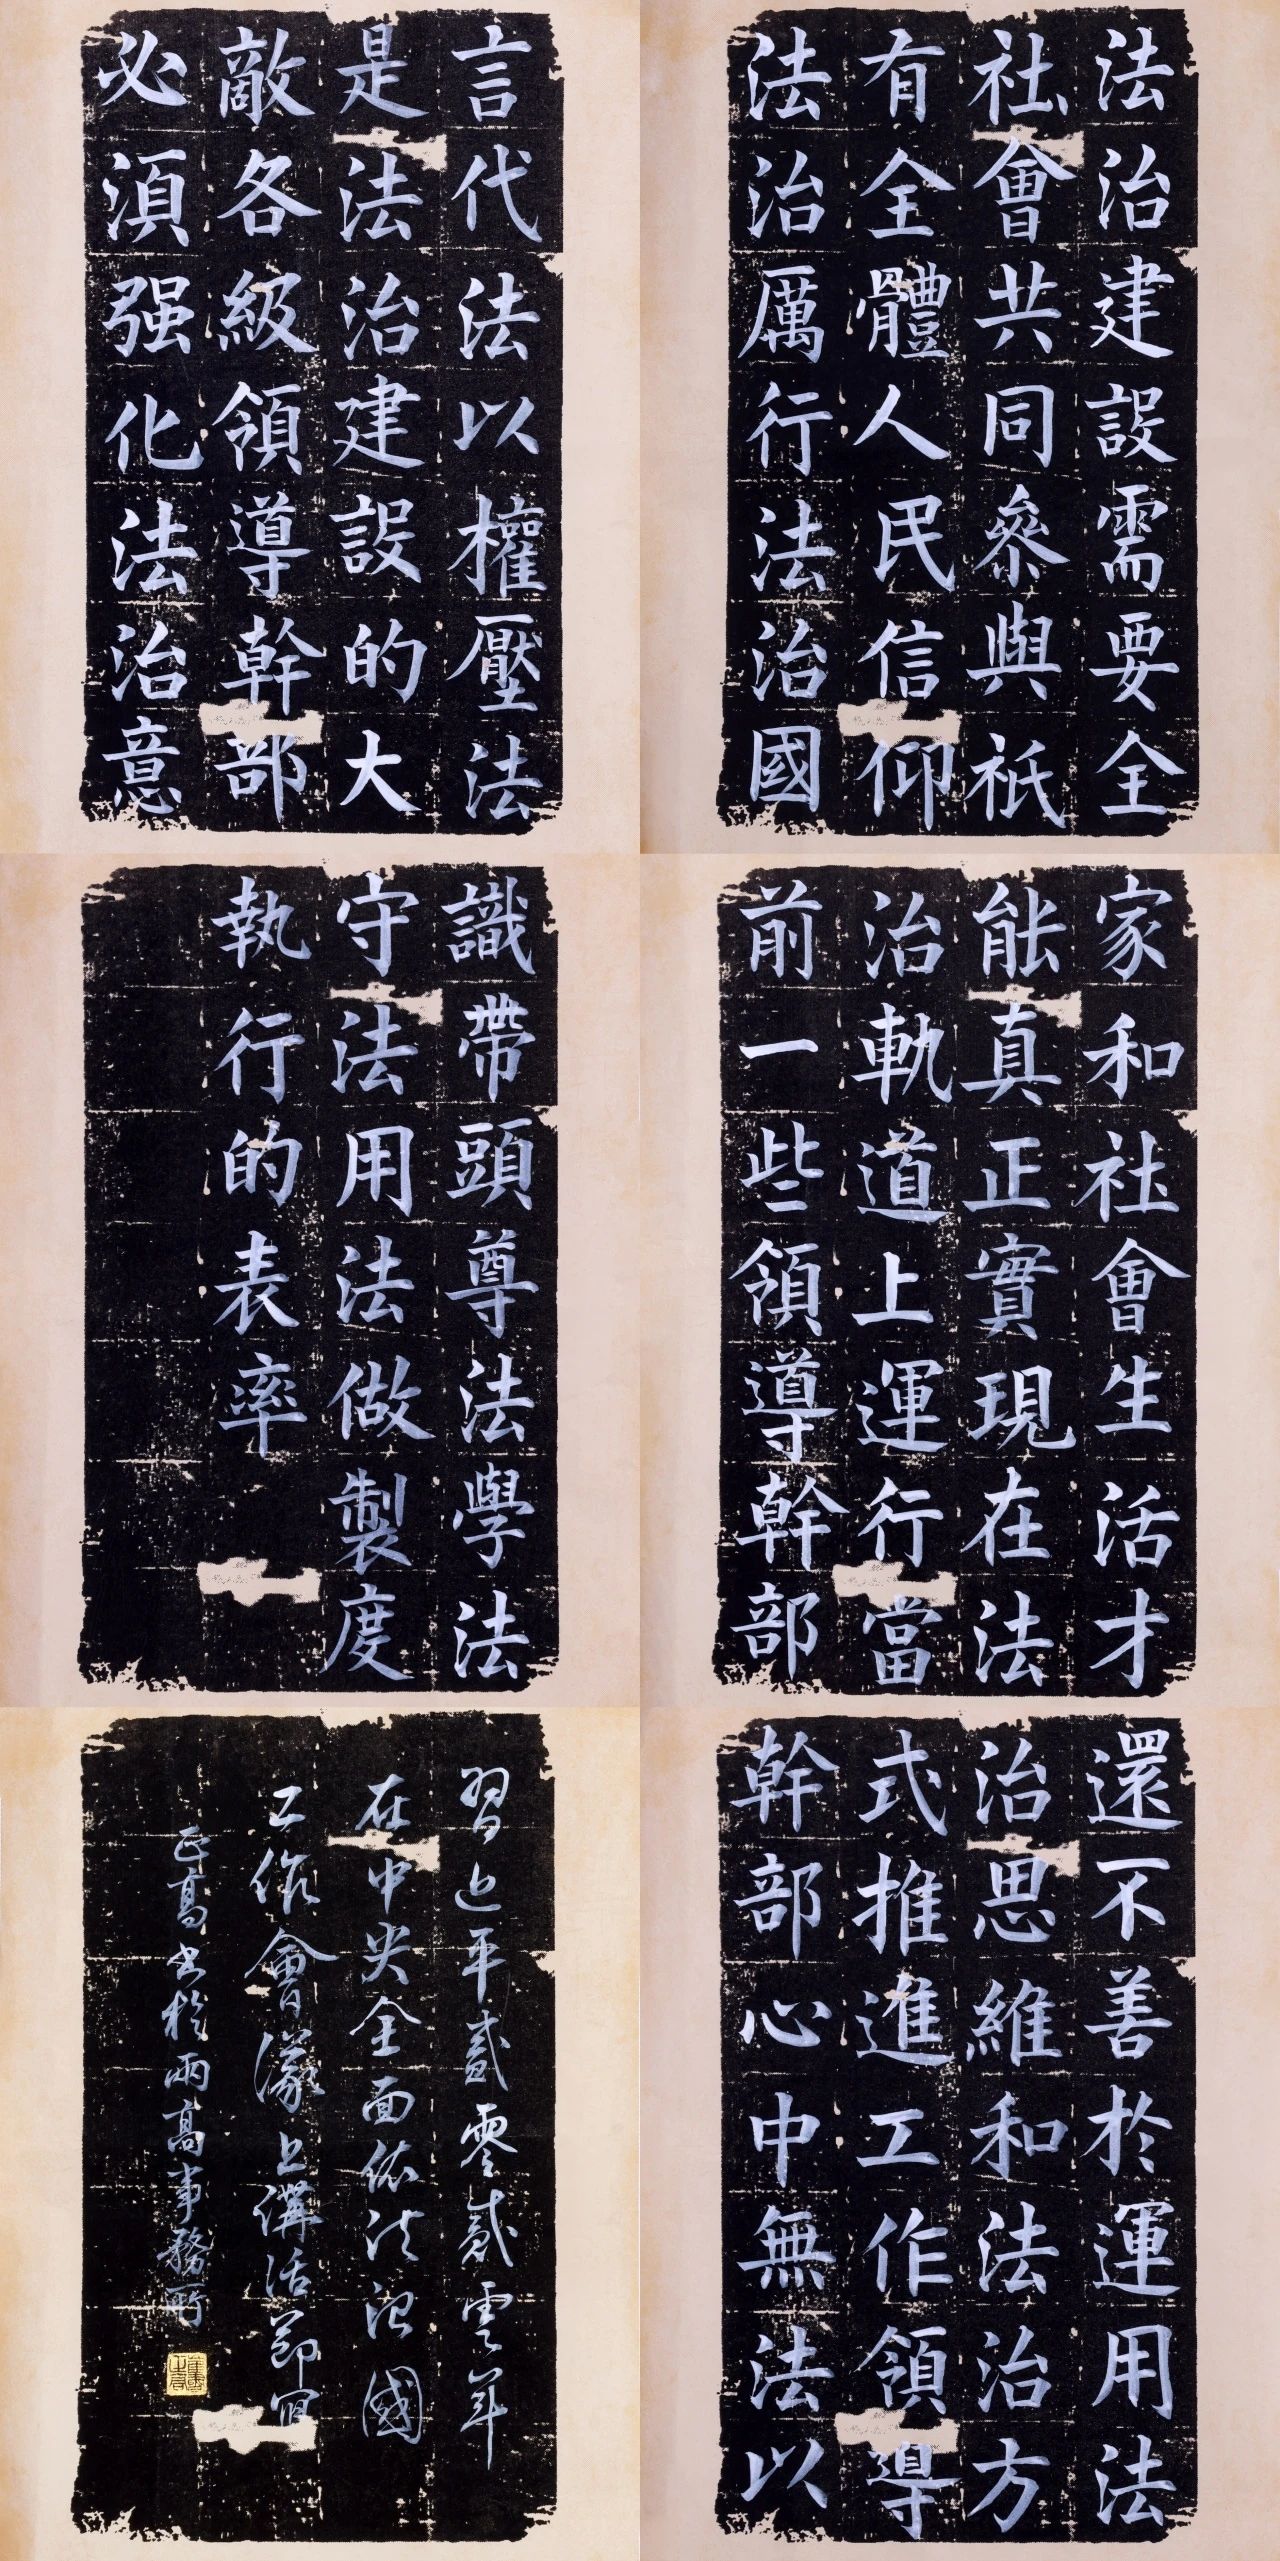 法治建設需要全
社會共同參與祇
有全體人民信仰
法治厲行法治國
家和社會生活才
能真正實現在法
治軌道上運行當
前一些領導幹部
還不善於運用法
治思維和法治方
式推進工作領導
幹部心中無法以
言代法以權壓法
是法治建設的大
敵各級領導幹部
必須强化法治意
識帶頭尊法學法
守法用法做製度
執行的表率
習近平貳零貳零年
在中央全面依法治國
工作會議上講話節
正高書於雨高事務所